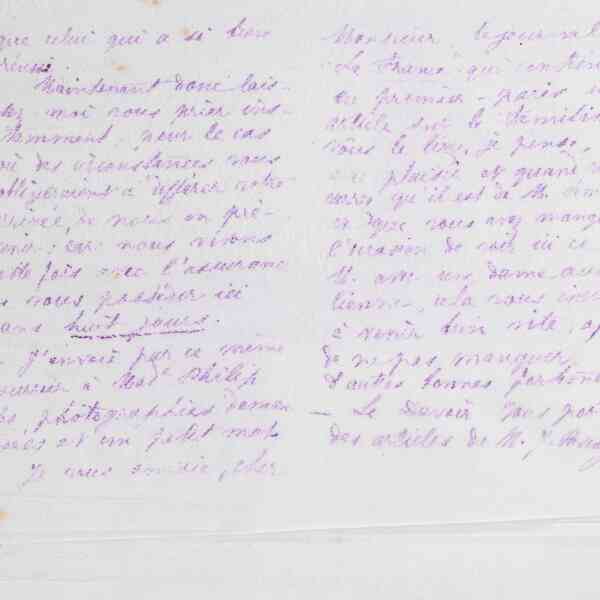 que celui qui a si bien
réussi.
Maintenant donc lais-
moi vous prier ins-
tamment, pour le cas
où des circonstances vous
obligeraient à différer votre
de nous en pré-
venir; car nous vivons
fois avec l'assurance
vous posséder ici
dans huit jours.
J'envoie par ce même
courrier à Made Philip
photographies deman-
dées et un petit mot.
Je vous envoie, cher
Monsieur, le journal
La France qui contient
premier-paris
article sur le
vous le lirez, je pense,
plaisir et quand
verrez qu'il est de M.
et que vous avez manqué
l'occasion de voir ici ce
M. avec une dame
cela vous
à venir bien vite,
de ne pas manquer
d'autres bonnes
— Le Devoir
des articles de M. J.